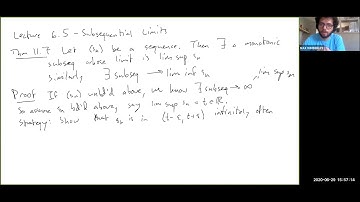 Lecture 6.5 - Subsequential Limits
Thm 11.7 Let (sn) be a sequence. Then ∃ a monotonic
subseq whose limit is lim sup sn
Similarly, ∃ subseq → lim inf sn
lim sup sn
Proof If (sn) unbd'd above, we know ∃ subseq → ∞
So assume sn bd'd above, say lim sup sn = t ∈ ℝ.
Strategy: Show that sn is in (t-ε, t+ε) infinitely often
2020-06-29 15:57:14